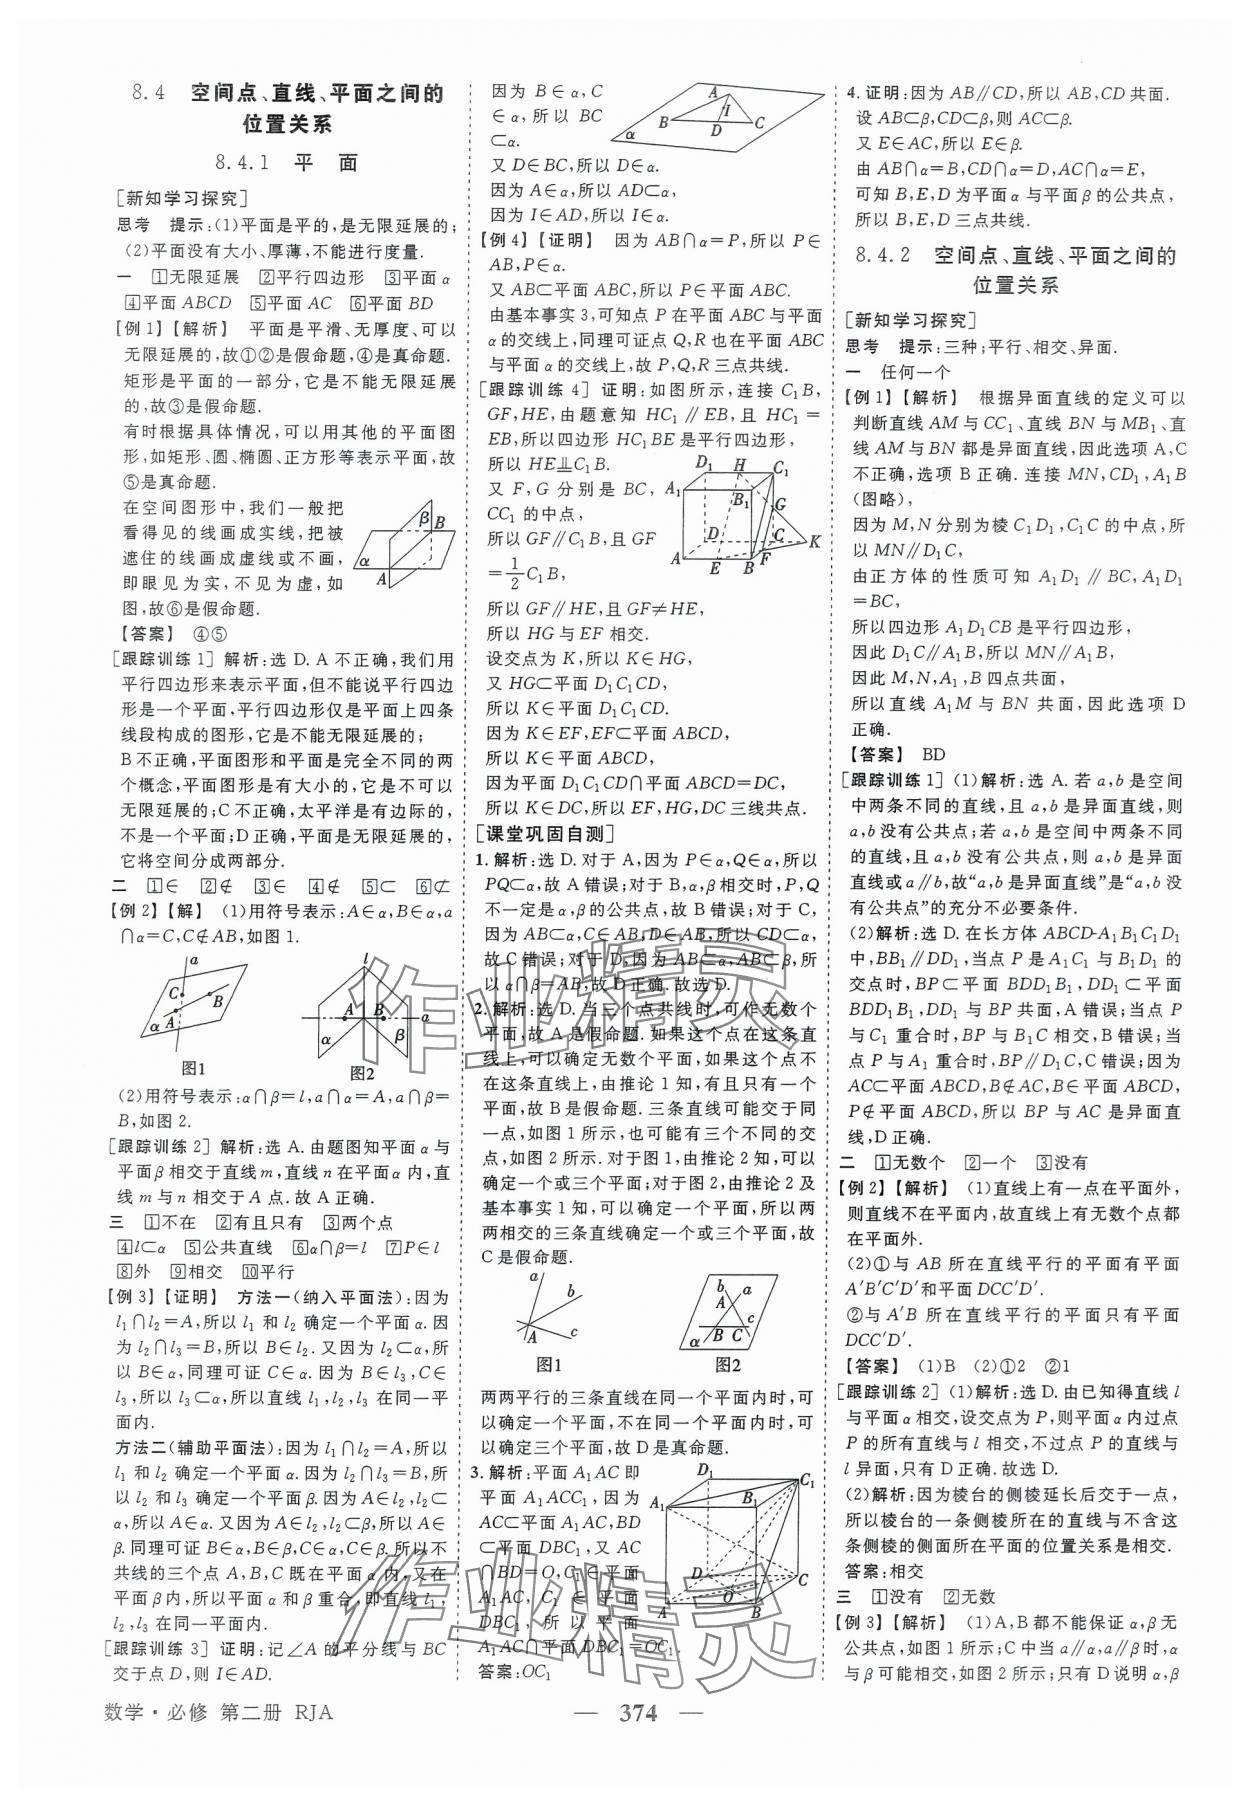 8.4 空间点、直线、平面之间的
位置关系
8.4.1 平 面
[新知学习探究]
思考 提示:(1)平面是平的,是无限延展的;
(2)平面没有大小、厚薄,不能进行度量.
一 ①无限延展 ②平行四边形 ③平面α
④平面 ABCD ⑤平面 AC ⑥平面 BD
[例1]【解析】 平面是平滑、无厚度、可以
无限延展的,故①②是假命题,④是真命题.
矩形是平面的一部分,它是不能无限延展
的,故③是假命题.
有时根据具体情况,可以用其他的平面图
形,如矩形、圆、椭圆、正方形等表示平面,故
⑤是真命题.
在空间图形中,我们一般把
看得见的线画成实线,把被
遮住的线画成虚线或不画,
即眼见为实,不见为虚,如
图,故⑥是假命题.
β B
α
A
【答案】 ④⑤
[跟踪训练1] 解析:选 D. A 不正确,我们用
平行四边形来表示平面,但不能说平行四边
形是一个平面,平行四边形仅是平面上四条
线段构成的图形,它是不能无限延展的;
B不正确,平面图形和平面是完全不同的两
个概念,平面图形是有大小的,它是不可以
无限延展的;C不正确,太平洋是有边际的,
不是一个平面;D正确,平面是无限延展的,
它将空间分成两部分.
二 ①∈ ②∉ ③∈ ④∉ ⑤⊂ ⑥⊄
[例2]【解】 (1)用符号表示:A∈α,B∈α,a
∩α=C,C∉AB,如图1.
a
C B
α A
图1
l
A B a
α β
图2
(2)用符号表示:α∩β=l,a∩α=A,a∩β=
B,如图2.
[跟踪训练2] 解析:选 A. 由题图知平面α与
平面β相交于直线m,直线n在平面α内,直
线m与n相交于A点.故A正确.
三 ①不在 ②有且只有 ③两个点
④l⊂α ⑤公共直线 ⑥α∩β=l ⑦P∈l
⑧外 ⑨相交 ⑩平行
[例3]【证明】 方法一(纳入平面法):因为
l₁∩l₂=A,所以l₁和l₂确定一个平面α.因
为l₂∩l₃=B,所以B∈l₂.又因为l₂⊂α,所
以B∈α.同理可证C∈α.因为B∈l₃,C∈
l₃,所以l₃⊂α,所以直线l₁,l₂,l₃在同一平
面内.
方法二(辅助平面法):因为l₁∩l₂=A,所以
l₁和l₂确定一个平面α.因为l₂∩l₃=B,所
以l₂和l₃确定一个平面β.因为A∈l₂,l₂⊂
α,所以A∈α.又因为A∈l₂,l₂⊂β,所以A∈
β.同理可证B∈α,B∈β,C∈α,C∈β.所以不
共线的三个点A,B,C既在平面α内,又在
平面β内,所以平面α和β重合,即直线l₁,
l₂,l₃在同一平面内.
[跟踪训练3] 证明:记∠A的平分线与BC
交于点D,则I∈AD.
因为B∈α,C
∈α,所以BC
⊂α.
A
I
B D C
α
又D∈BC,所以D∈α.
因为A∈α,所以AD⊂α,
因为I∈AD,所以I∈α.
[例4]【证明】 因为AB∩α=P,所以P∈
AB,P∈α.
又AB⊂平面ABC,所以P∈平面ABC.
由基本事实3,可知点P在平面ABC与平面
α的交线上,同理可证点Q,R也在平面ABC
与平面α的交线上,故P,Q,R三点共线.
[跟踪训练4] 证明:如图所示,连接C₁B,
GF,HE,由题意知HC₁∥EB,且HC₁=
EB,所以四边形HC₁BE是平行四边形,
所以HE∥C₁B.
又F,G分别是BC,
CC₁的中点,
所以GF∥C₁B,且GF
=1/2C₁B,
D₁ H C₁
A₁ B₁ G
D C K
A E B F
所以GF∥HE,且GF≠HE,
所以HG与EF相交.
设交点为K,所以K∈HG,
又HG⊂平面D₁C₁CD,
所以K∈平面D₁C₁CD.
因为K∈EF,EF⊂平面ABCD,
所以K∈平面ABCD,
因为平面D₁C₁CD∩平面ABCD=DC,
所以K∈DC,所以EF,HG,DC三线共点.
[课堂巩固自测]
1.解析:选D.对于A,因为P∈α,Q∈α,所以
PQ⊂α,故A错误;对于B,α,β相交时,P,Q
不一定是α,β的公共点,故B错误;对于C,
因为AB⊂α,C∈AB,D∈AB,所以CD⊂α,
故C错误;对于D,因为AB⊂α,AB⊂β,所
以α∩β=AB,故D正确.故选D.
2.解析:选D.当三个点共线时,可作无数个
平面,故A是假命题.如果这个点在这条直
线上,可以确定无数个平面,如果这个点不
在这条直线上,由推论1知,有且只有一个
平面,故B是假命题.三条直线可能交于同
一点,如图1所示,也可能有三个不同的交
点,如图2所示.对于图1,由推论2知,可以
确定一个或三个平面;对于图2,由推论2及
基本事实1知,可以确定一个平面,所以两
两相交的三条直线确定一个或三个平面,故
C是假命题.
a
b
A c
图1
b a
A
B C
α c
图2
两两平行的三条直线在同一个平面内时,可
以确定一个平面,不在同一个平面内时,可
以确定三个平面,故D是真命题.
3.解析:平面A₁AC即
平面A₁ACC₁,因为
AC⊂平面A₁AC,BD
⊂平面DBC₁,又AC
∩BD=O,C₁∈平面
A₁AC,C₁∈平面
DBC₁,所以平面
A₁AC∩平面DBC₁=OC₁.
答案:OC₁
D₁ C₁
A₁ B₁
D C
A O B
4.证明:因为AB∥CD,所以AB,CD共面.
设AB⊂β,CD⊂β,则AC⊂β.
又E∈AC,所以E∈β.
由AB∩α=B,CD∩α=D,AC∩α=E,
可知B,E,D为平面α与平面β的公共点,
所以B,E,D三点共线.
8.4.2 空间点、直线、平面之间的
位置关系
[新知学习探究]
思考 提示:三种;平行、相交、异面.
一 任何一个
[例1]【解析】 根据异面直线的定义可以
判断直线AM与CC₁、直线BN与MB₁、直
线AM与BN都是异面直线,因此选项A,C
不正确,选项B正确.连接MN,CD₁,A₁B
(图略),
因为M,N分别为棱C₁D₁,C₁C的中点,所
以MN∥D₁C,
由正方体的性质可知A₁D₁∥BC,A₁D₁
=BC,
所以四边形A₁D₁CB是平行四边形,
因此D₁C∥A₁B,所以MN∥A₁B,
因此M,N,A₁,B四点共面,
所以直线A₁M与BN共面,因此选项D
正确.
【答案】 BD
[跟踪训练1] (1)解析:选A.若a,b是空间
中两条不同的直线,且a,b是异面直线,则
a,b没有公共点;若a,b是空间中两条不同
的直线,且a,b没有公共点,则a,b是异面
直线或a∥b,故“a,b是异面直线”是“a,b没
有公共点”的充分不必要条件.
(2)解析:选D.在长方体ABCD-A₁B₁C₁D₁
中,BB₁∥DD₁,当点P是A₁C₁与B₁D₁的
交点时,BP⊂平面BDD₁B₁,DD₁⊂平面
BDD₁B₁,DD₁与BP共面,A错误;当点P
与C₁重合时,BP与B₁C相交,B错误;当
点P与A₁重合时,BP∥D₁C,C错误;因为
AC⊂平面ABCD,B∉AC,B∈平面ABCD,
P∉平面ABCD,所以BP与AC是异面直
线,D正确.
二 ①无数个 ②一个 ③没有
[例2]【解析】 (1)直线上有一点在平面外,
则直线不在平面内,故直线上有无数个点都
在平面外.
(2)①与AB所在直线平行的平面有平面
A′B′C′D′和平面DCC′D′.
②与A′B所在直线平行的平面只有平面
DCC′D′.
【答案】 (1)B (2)①2 ②1
[跟踪训练2] (1)解析:选D.由已知得直线l
与平面α相交,设交点为P,则平面内过点
P的所有直线与l相交,不过点P的直线与
l异面,只有D正确.故选D.
(2)解析:因为棱台的侧棱延长后交于一点,
所以棱台的一条侧棱所在的直线与不含这
条侧棱的侧面所在平面的位置关系是相交.
答案:相交
三 ①没有 ②无数
[例3]【解析】 (1)A,B都不能保证α,β无
公共点,如图1所示;C中当a∥α,a∥β时,α
与β可能相交,如图2所示;只有D说明α,β
作业精灵
作业精灵
数学·必修 第二册 RJA
— 374 —